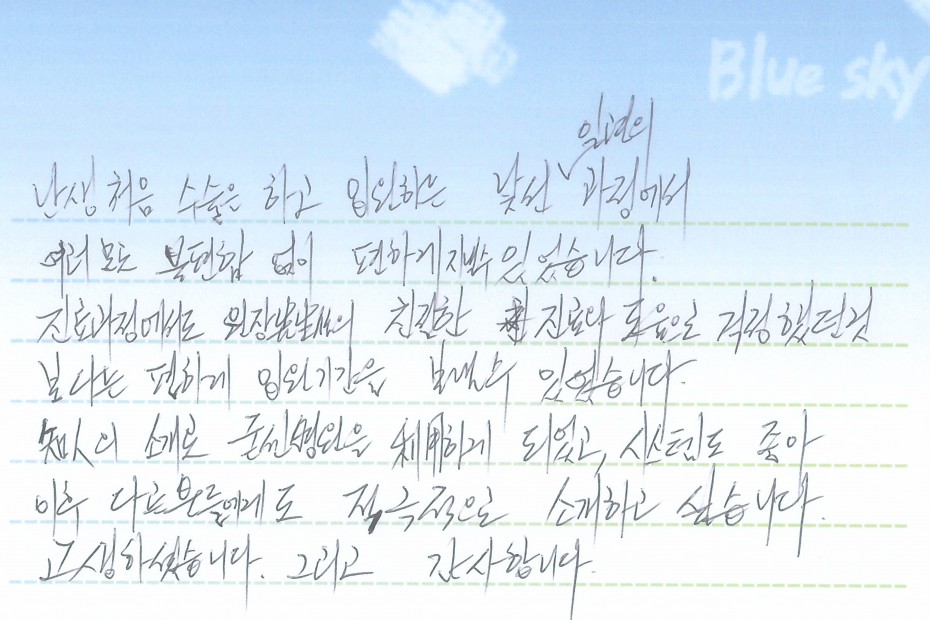 Blue sky
일련의
난생 처음 수술은 하고 입원하는 낯선 과정에서
여러모로 불편함 없이 편하게 지낼수 있었습니다.
진료과정에서도 원장님의 친절한 진료와 도움으로 걱정했던것
보다는 편하게 입원기간을 보낼수 있었습니다.
知人의 소개로 병원을 利用하게 되었고, 시스템도 좋아
이후 다른분들에게도 적극적으로 소개하고 싶습니다.
고생하셨습니다. 그리고 감사합니다.